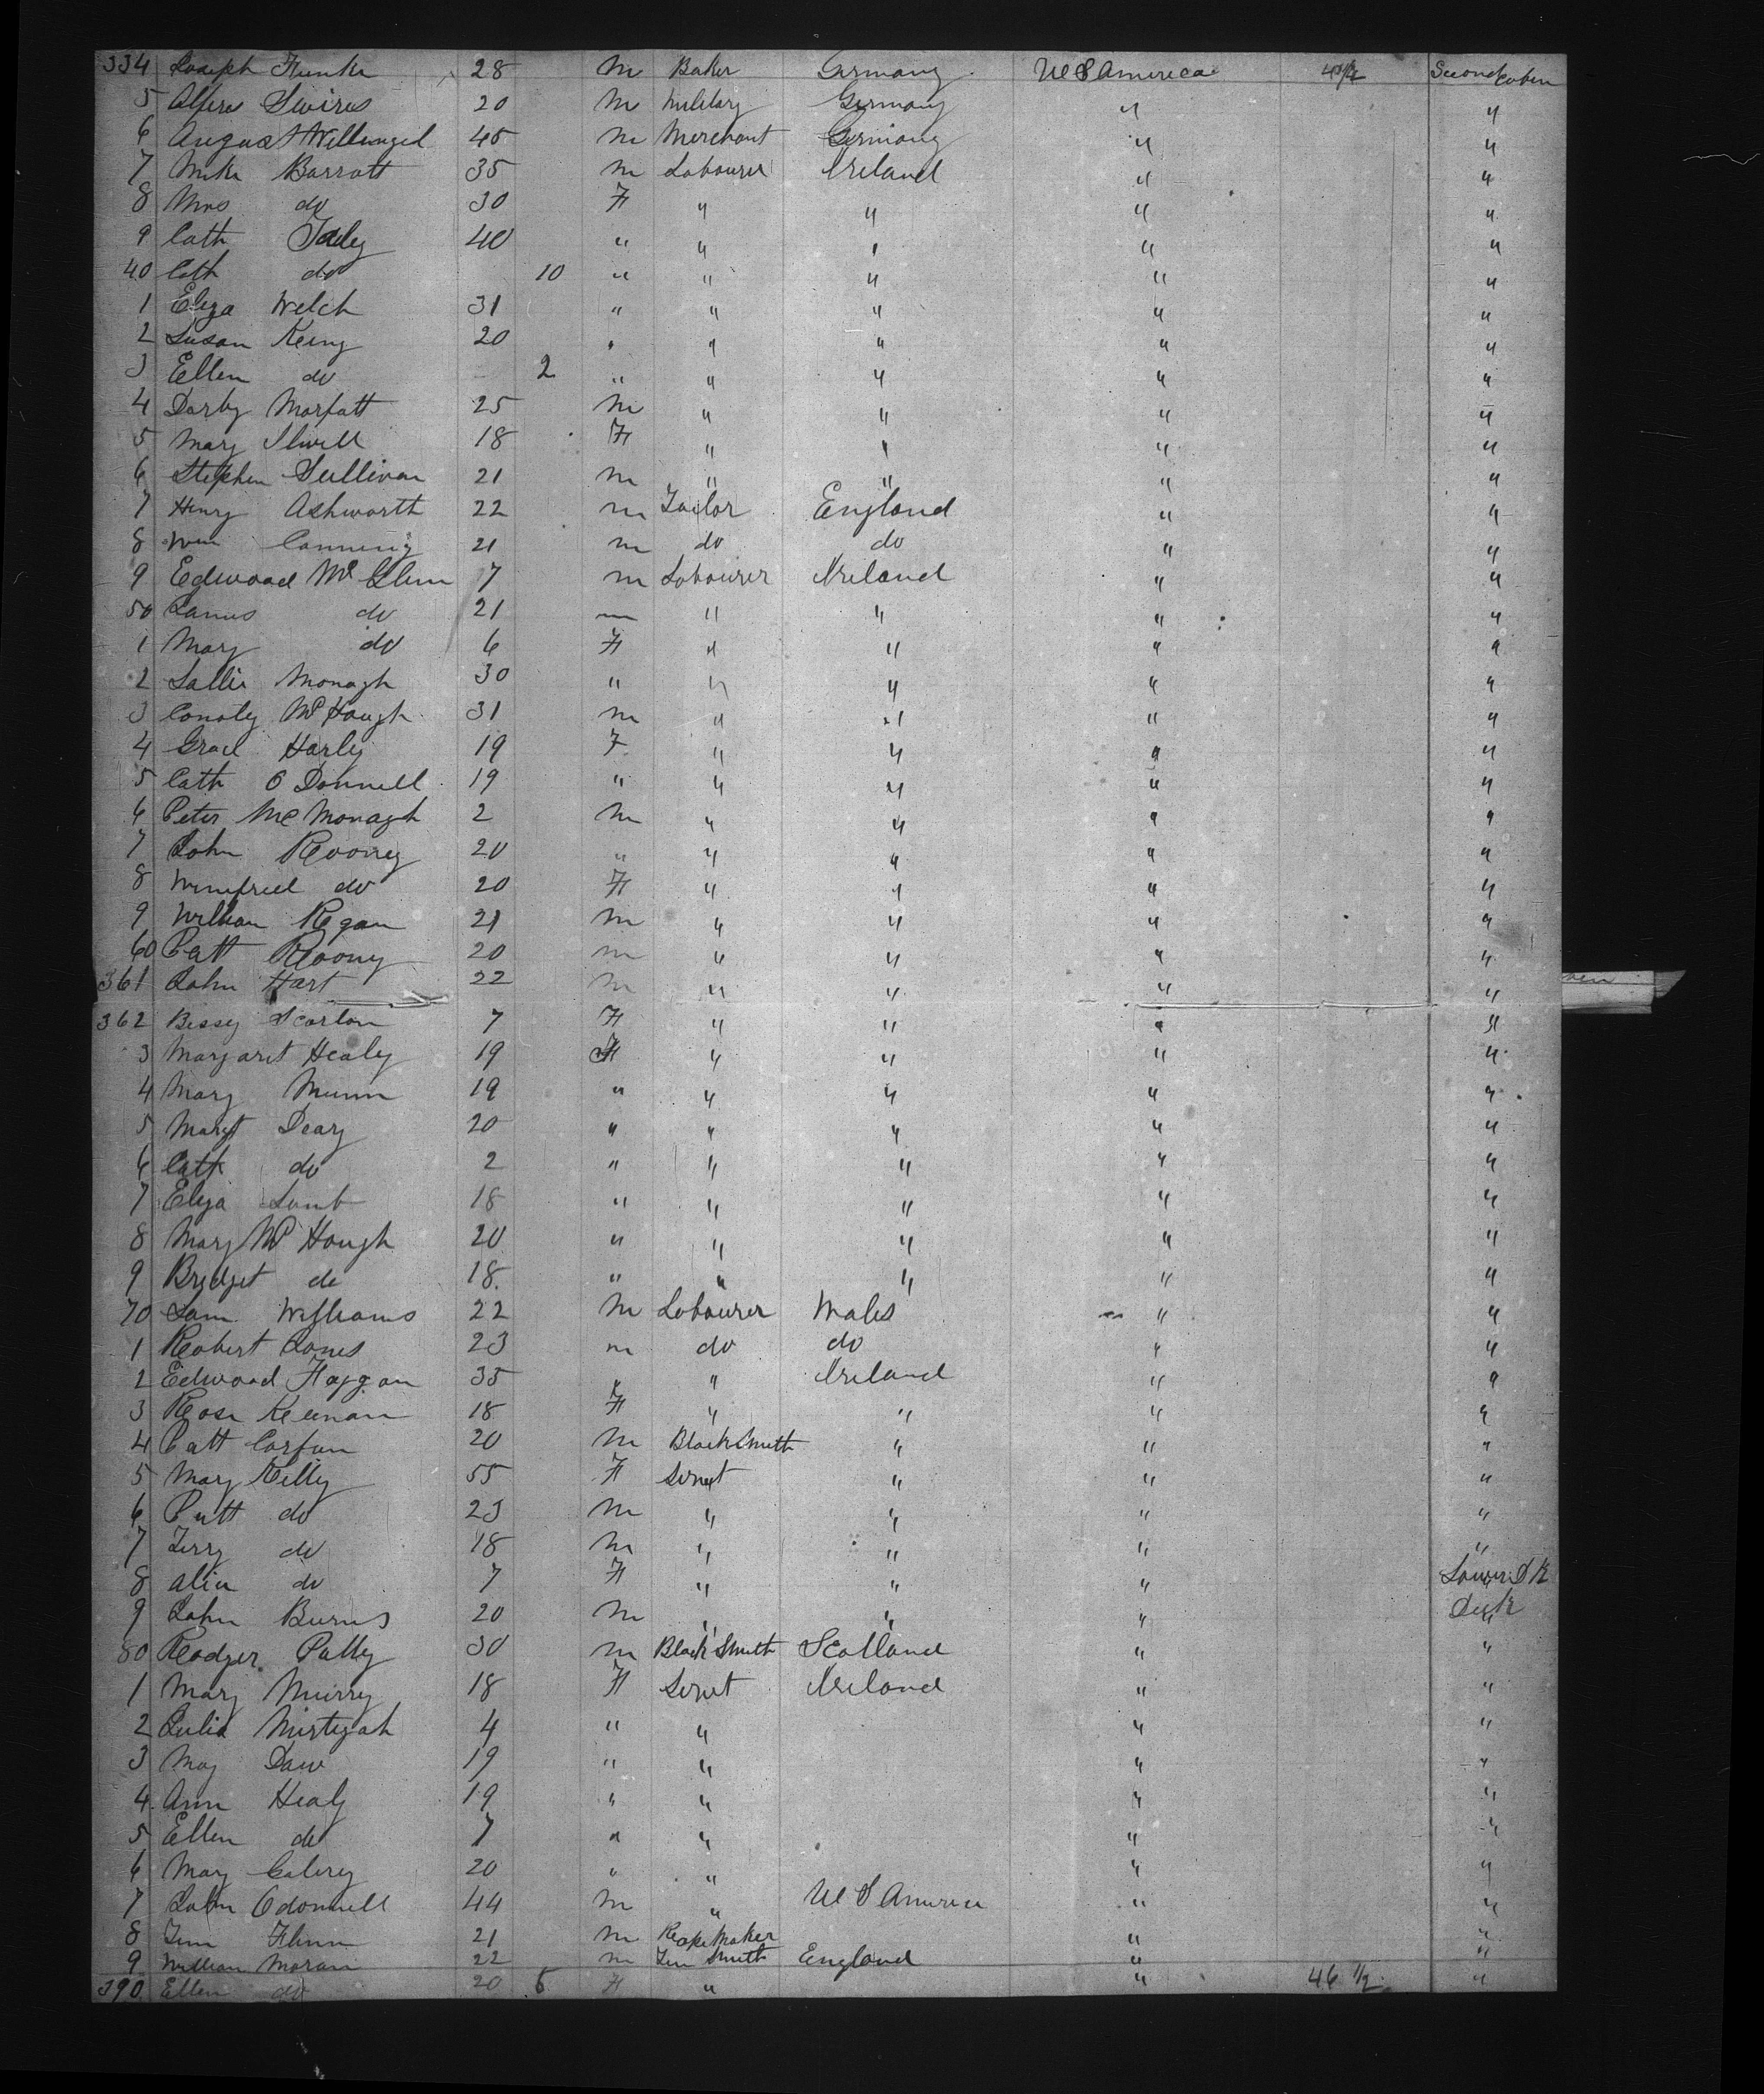 334 Joseph Funke 28 M Baker Germany U S America Second Cabin
5 20 M Military Germany " "
6 August 45 M Merchant Germany " "
7 Mike Barratt 35 M Labourer Ireland " "
8 Mrs do 30 F " " " "
9 Cath 40 " " " " "
40 Cath do 10 " " " " "
1 Eliza Welch 31 " " " " "
2 Susan King 20 " " " " "
3 Ellen do 2 " " " " "
4 Darby Morfatt 25 M " " " "
5 Mary 18 F " " " "
6 Stephen Sullivan 21 M " " " "
7 Henry Ashworth 22 M Tailor England " "
8 Wm Canning 21 M do do " "
9 Edward Mc Glun 7 M Labourer Ireland " "
50 James do 21 M " " " "
1 Mary do 6 F " " " "
2 Sallie Monagh 30 " " " " "
3 Conoly Mc Hough 31 M " " " "
4 Grace Harley 19 F " " " "
5 Cath O Donnell 19 " " " " "
6 Peter Mc Monagh 2 M " " " "
7 John Rooney 20 " " " " "
8 Winifred do 20 F " " " "
9 William Regan 21 M " " " "
60 Patt Roony 20 M " " " "
361 John Hart 22 M " " " "
362 Bessy Scarlon 7 F " " " "
3 Margaret Healy 19 F " " " "
4 Mary Munn 19 " " " " "
5 Margt Deary 20 " " " " "
6 Cath do 2 " " " " "
7 Eliza Lamb 18 " " " " "
8 Mary Mc Hough 20 " " " " "
9 Bridget do 18 " " " " "
70 Sam Williams 22 M Labourer Wales " "
1 Robert Jones 23 M do do " "
2 Edward Haggan 35 " " Ireland " "
3 Rose Keenan 18 F " " " "
4 Patt Corfan 20 M BlackSmith " " "
5 Mary Kelly 55 F Servt " " "
6 Patt do 23 M " " " "
7 Terry do 18 M " " " "
8 Alice do 7 F " " " Lower Dk
9 John Burns 20 M " " " Deck
80 Rodger Patty 30 M Black Smith Scotland " "
1 Mary Murry 18 F Servt Ireland " "
2 Julia 4 " " " "
3 May 19 " " " "
4 Ann Healy 19 " " " "
5 Ellen do 7 " " " "
6 Mary 20 " " " "
7 John Odonnell 44 M " U S America " "
8 Flinn 21 M Rope Maker " "
9 William Moran 22 M Tin Smith England " "
390 Ellen do 20 6 F " " 46 1/2 "